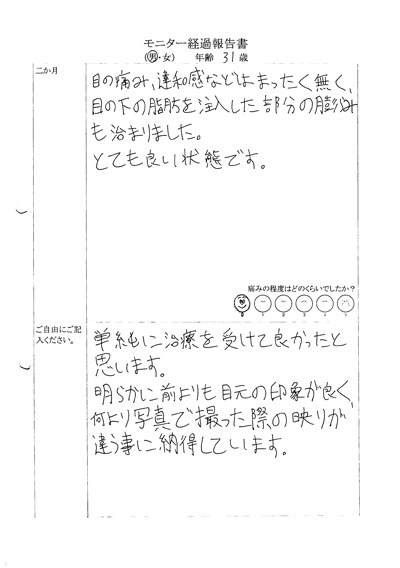 モニター経過報告書
(男・女)　年齢 31 歳
二か月
目の痛み、違和感などはまったく無く、
目の下の脂肪を注入した部分の膨らみ
も治まりました。
とても良い状態です。
痛みの程度はどのくらいでしたか？
ご自由にご記
入ください。
単純に治療を受けて良かったと
思います。
明らかに前よりも目元の印象が良く、
何より写真で撮った際の映りが
違う事に納得しています。